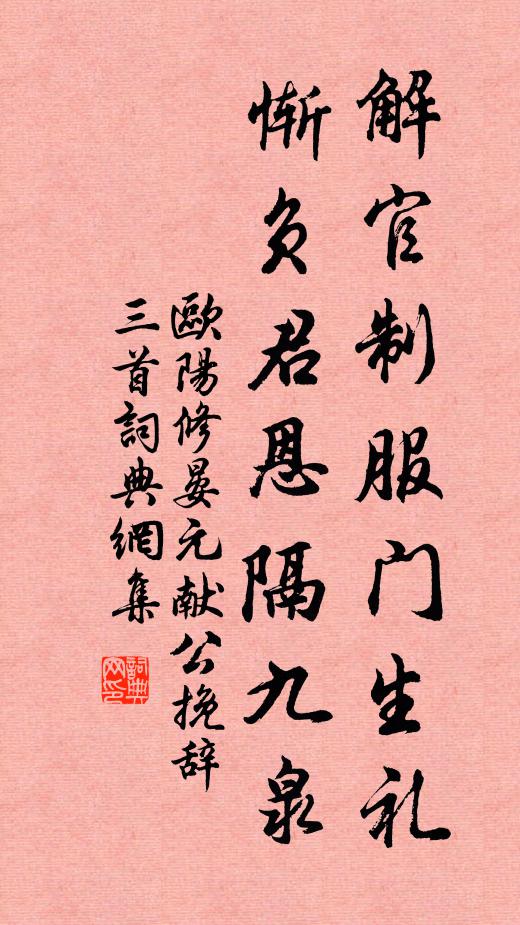 解官制服门生礼
惭负君恩隔九泉
歐陽修晏元献公挽辞
三首詞典網集
詞典网印